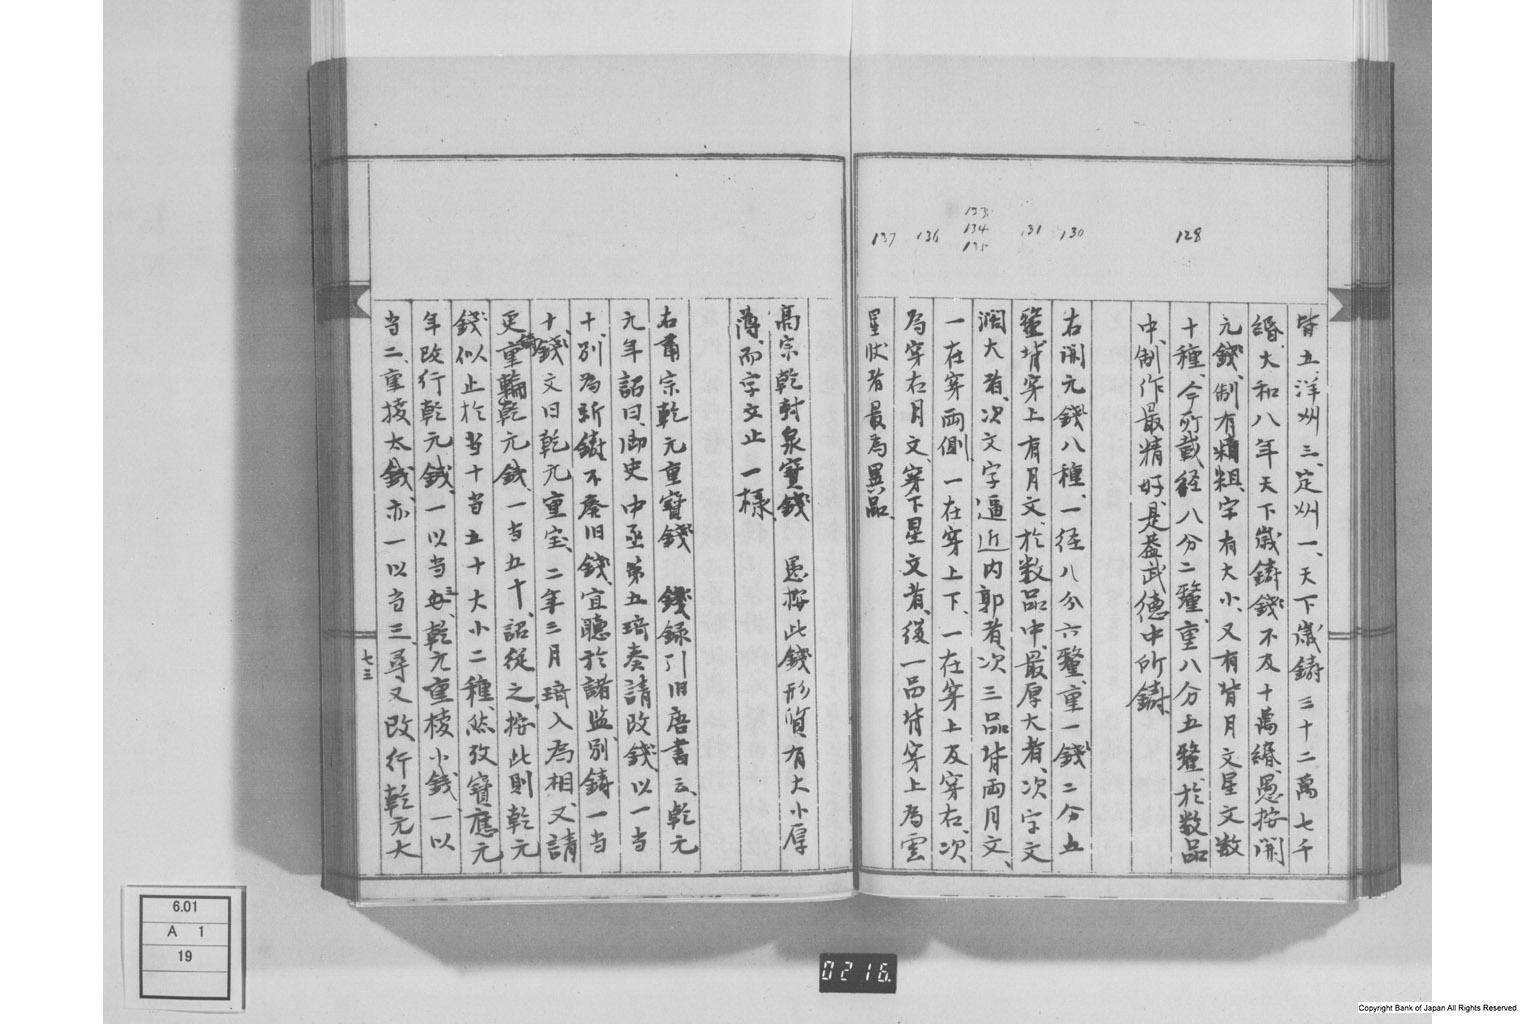 128
130
131
133
134
135
136
137
皆五、洋州三、定州一、天下歳鋳三十二萬七千
緡、大和八年天下歳鋳錢不及十萬緡、愚按開
元錢制有精粗、字有大小、又有背月文星文数
十種、今所載径八分二釐、重八分五釐、於数品
中、制作最精好、是益武徳中所鋳
右開元錢八種、一径八分六釐、重一錢二分五
釐、背穿上有月文、於数品中、最厚大者、次字文
濶大者、次文字逼近内郭者、次三品背両月文、
一在穿両側、一在穿上下、一在穿上及穿右、次
為穿右月文、穿下星文者、後一品背穿上為雲
星状者最為異品、
高宗乾封泉寶錢　愚按此錢形質有大小厚
薄、而字文止一様、
右肅宗乾元重寶錢　錢録引旧唐書云、乾元
元年詔曰、御史中丞第五琦奏請改錢、以一当
十、別為新鋳、不廃旧錢、宜聴於諸監別鋳一当
十錢、文曰乾元重宝、二年三月琦入為相、又請
更鋳重輪乾元錢、一当五十、詔従之、按此則乾元
錢似止於当十当五十大小二種、然攷寶應元
年改行乾元錢、一以当三、乾元重稜小錢、一以
当二、重稜大錢、亦一以当三、尋又改行乾元大
七三
6.01
A 1
19
0216.
Copyright Bank of Japan All Rights Reserved.